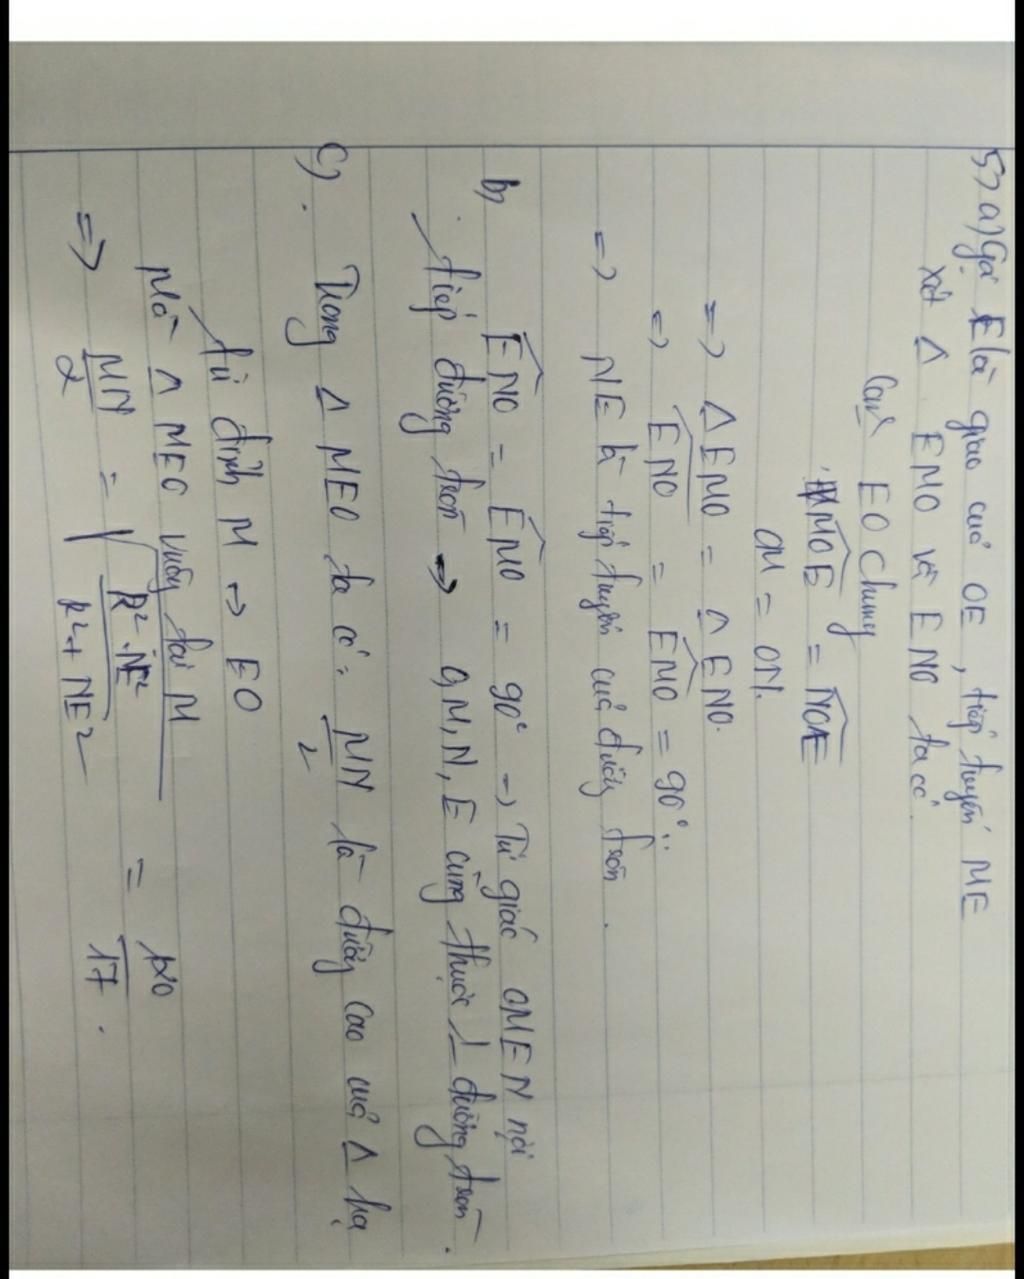 5) a) Gọi E là giao của OE, tiếp tuyến ME
Xét Δ EMO và ENO ta có
Cạnh EO chung
MOE = NOE
OM = ON.
=> Δ EMO = Δ ENO.
=> ENO = EMO = 90°
=> NE là tiếp tuyến của đường tròn.
b, ENO = EMO = 90° → Tứ giác OMEN nội
tiếp đường tròn => O, M, N, E cùng thuộc 1 đường tròn.
c). Trong Δ MEO ta có: MN/2 là đường cao của Δ hạ
từ đỉnh M → EO
Mà Δ MEO vuông tại M
=> MN/2 = √(R².NE²/R² + NE²) = 120/17.